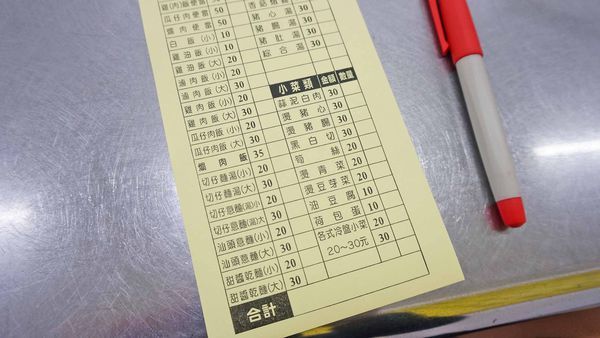 瓜仔肉便當 50
白飯(小) 10
雞油飯(小)
雞油飯(大)
滷肉飯(小) 20
滷肉飯(大) 30
雞肉飯(小) 20
雞肉飯(大) 30
瓜仔肉飯(小) 20
瓜仔肉飯(大) 30
爌肉飯 35
切仔麵湯(小) 20
切仔麵湯(大) 30
切仔意麵(湯)小 20
切仔意麵(湯)大 30
汕頭意麵(小) 20
汕頭意麵(大) 30
甜醬乾麵(小) 20
甜醬乾麵(大) 30
合計
豬心湯 30
豬腸湯 30
豬肚湯 30
綜合湯 30
小菜類 金額 數量
蒜泥白肉 30
燙豬心 30
燙豬腸 30
黑白切 30
筍絲 20
燙青菜 20
燙豆芽菜 20
油豆腐 10
荷包蛋 10
各式冷盤小菜 20
20~30元 30